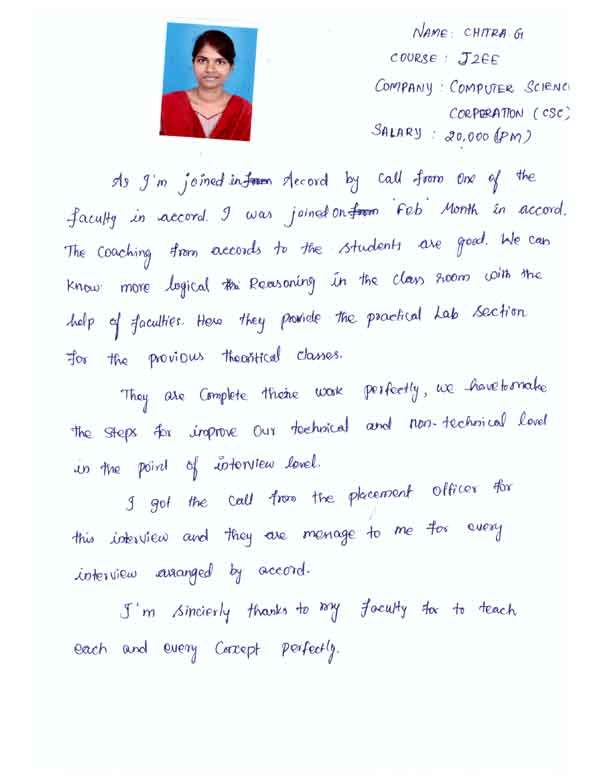 NAME: CHITRA G
COURSE: J2EE
COMPANY: COMPUTER SCIENC
CORPORATION (CSC)
SALARY: 20,000 (PM)
As I'm joined in from Accord by call from one of the
faculty in accord. I was joined on from 'Feb' Month in accord.
The Coaching from accords to the students are good. We can
know more logical the Reasoning in the class room with the
help of faculties. Here they provide the practical Lab section
for the previous theoritical classes.
They are Complete there work perfectly, we have to make
the steps for improve our technical and non-technical level
in the point of interview level.
I got the call from the placement officer for
this interview and they are menage to me for every
interview arranged by accord.
I'm sincierly thanks to my faculty for to teach
each and every Concept perfectly.